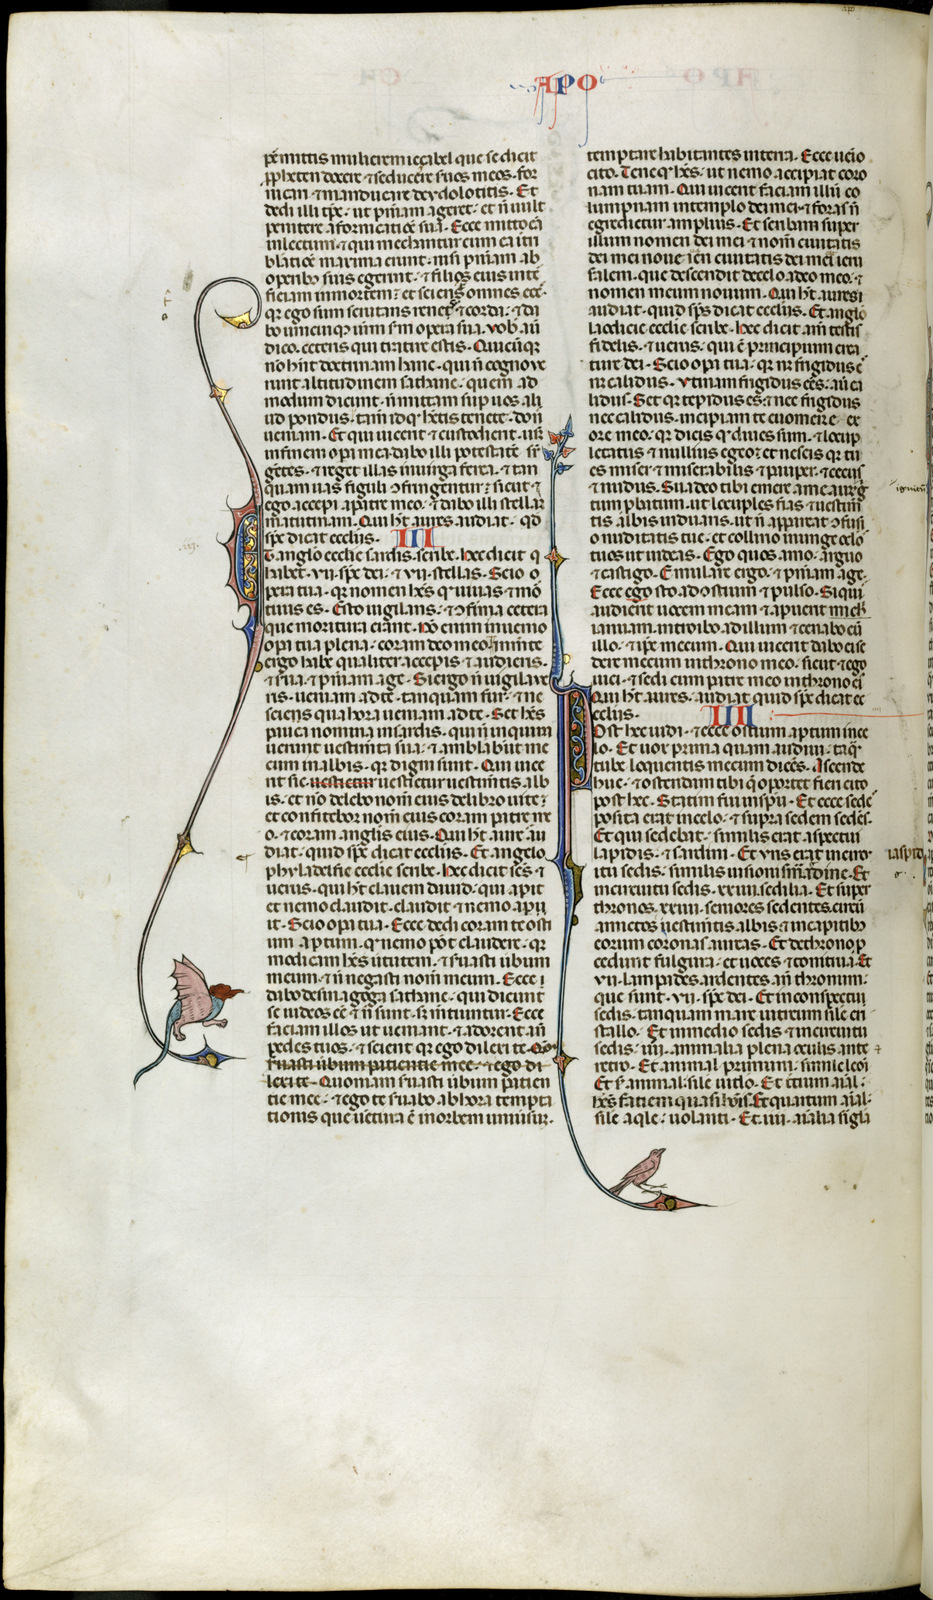 APO
p̄mittis mulierem iezabel que se dicit
ꝓpheten docere ⁊ seducere suos meos. for
nicari ⁊ manducare de ydolotitis. Et
dedi illi tp̄s. ut pn̄iam ageret. et n̄ uult
penitere a fornicatione sua. Ecce mitto eā
in lectum. ⁊ qui mechantur cum ea in tri
blatiōe maxima erunt. nisi pn̄iam ab
operibꝰ suis egerint. ⁊ filios eius inte
ficiam in mortem. et scient omnes ecc̄e.
qꝛ ego sum scrutans renes ⁊ corda. ⁊ da
bo unicuiqꝫ ur̄m sm̄ opera sua. Vob̄ aū
dico. ceteris qui tiatire estis. Quicūqꝫ
nō hn̄t doctrinam hanc. qui n̄ cognoue
runt altitudinem sathane. quem ad
modum dicunt. n̄ mittam sup uos ali
ud pondus. tam̄ id qꝫ hētis tenete. don̄
ueniam. Et qui uicerit ⁊ custodierit. usqꝫ
in finem op̄a mea. dabo illi potestatē sr̄
gētes. ⁊ reget illas in uirga ferrea. ⁊ tan
quam uas figuli ↄfringentur. sicut ⁊
ego accepi a patre meo. ⁊ dabo illi stellam
matutinam. Qui ht̄ aures audiat. qd̄
sp̄c dicat eccliis. III
Et anglo ecclie sardis. scribe. Hec dicit q̄
habet. vij. sp̄c dei. ⁊ vij. stellas. Scio o
pera tua. qꝛ nomen hēs qꝫ uiuas ⁊ mo
rtuus es. Esto uigilans. ⁊ ↄfirma cetera
que moritura erant. Nō enim inuenio
op̄a tua plena. coram deo meo. In m̄te
ergo habe qualiter acceperis ⁊ audieris.
⁊ s̄ua. ⁊ pn̄iam age. Si ergo n̄ uigilaue
ris. ueniam ad te. tanquam fur. ⁊ ne
scies qua hora ueniam ad te. Set hēs
pauca nomina in sardis. qui n̄ inquina
uerunt uestimta sua. ⁊ amblabūt me
cum in albis. qꝛ digni sunt. Qui uice
rit sic uestietur uestietur uestim̄tis alb
is. et nō delebo nom̄ eius de libro uite.
et confitebor nom̄ eius coram patre me
o. ⁊ coram anglis eius. Qui ht̄ aure au
diat. quid sp̄c dicat eccliis. Et angelo
phyladelfie ecclie scribe. Hec dicit sc̄s ⁊
uerus. qui ht̄ clauem dauid. qui aperit
et nemo claudit. claudit ⁊ nemo aperi
it. Scio op̄a tua. Ecce dedi coram te osti
um apertum. qd̄ nemo pōt claudere. qꝛ
modicam hēs uirtutem. ⁊ seruasti uerbum
meum. ⁊ n̄ negasti nom̄ meum. Ecce
dabo de sinagoga sathane. qui dicunt
se iudeos eē ⁊ n̄ sunt. s; mentiuntur. Ecce
faciam illos ut ueniant. ⁊ adorent an̄
pedes tuos. ⁊ scient qꝛ ego dilexi te. Qm̄
seruasti ūbum patientie mee. ⁊ ego di
lexi te. Quoniam seruasti ūbum patien
tie mee. ⁊ ego te seruabo ab hora tempta
tionis que uentura ē in orbem uniuersum.
temptare habitantes in terra. Ecce uenio
cito. Tene qꝫ hēs. ut nemo accipiat coro
nam tuam. Qui uicerit faciam illū co
lumpnam in templo dei mei. ⁊ foras n̄
egredietur amplius. Et scribam super
illum nomen dei mei ⁊ nom̄ ciuitatis
dei mei noue iērl̄m ciuitatis dei mei ieru
salem. que descendit de celo a deo meo. ⁊
nomen meum nouum. Qui ht̄ aures
audiat. quid sp̄s dicat eccliis. Et anglo
laodicie ecclie scribe. Hec dicit am̄ testis
fidelis. ⁊ uerus. qui ē principium crea
ture dei. Scio op̄a tua. qꝛ nr̄ frigidus es
nr̄ calidus. Vtinam frigidus eēs. aut ca
lidus. Set qꝛ tepidus es. ⁊ nec frigidus
nec calidus. incipiam te euomere ex
ore meo. qꝛ dicis qꝫ diues sum. ⁊ locup
letatus ⁊ nullius egeo. et nescis qꝛ tu
es miser ⁊ miserabilis ⁊ pauper. ⁊ cecus
⁊ nudus. Suadeo tibi emere a me aurum
ignitum
tum probatum. ut locuples fias. ⁊ uestim̄
tis albis induaris. ut n̄ appareat ↄfusi
o nuditatis tue. et collirio inunge oclo
tuos ut uideas. Ego quos amo. arguo
⁊ castigo. Emulare ergo. ⁊ pn̄iam age.
Ecce ego sto ad ostium ⁊ pulso. Si quis
audierit uocem meam ⁊ apuerit mich
ianuam. introibo ad illum ⁊ cenabo cū
illo. ⁊ ip̄e mecum. Qui uicerit dabo ei se
dere mecum in throno meo. sicut ⁊ ego
uici. ⁊ sedi cum patre meo in throno ei
Qui ht̄ aures. audiat quid sp̄c dicat e
ccliis. IIII
Post hec uidi. ⁊ ecce ostium aptum in ce
lo. Et uox prima quam audiui. taqꝫ
tube loquentis mecum dicēs. Ascende
huc. ⁊ ostendam tibi q̄ oportet fieri cito
post hec. Statim fui in sp̄u. Et ecce sede
posita erat in celo. ⁊ supra sedem sedēs.
Et qui sedebat. similis erat aspectui
lapidis. ⁊ sardini. Et yris erat in circu
iaspid
itu sedis. similis uisioni smaradine. Et
in circuitu sedis. xxiiii. sedilia. Et super
thronos. xxiiii. seniores sedentes. circū
amictos uestim̄tis albis ⁊ in capitibꝰ
eorum coronas aureas. Et de throno p
cedunt fulgura. et uoces ⁊ tonitrua. Et
vii. lampades ardentes an̄ thronum.
que sunt. vii. sp̄c dei. Et in conspectu
sedis. tanquam mare uitreum sile cri
stallo. Et in medio sedis ⁊ in circuitu
sedis. iiii. animalia plena oculis ante ⁊
retro. Et animal primum. simile leoni
Et s̄. animal. sile uitlo. Et t̄cium aial.
hēs faciem quasi hōis. Et quartum aial.
sile aqle. uolanti. Et. iiii. aialia sigla